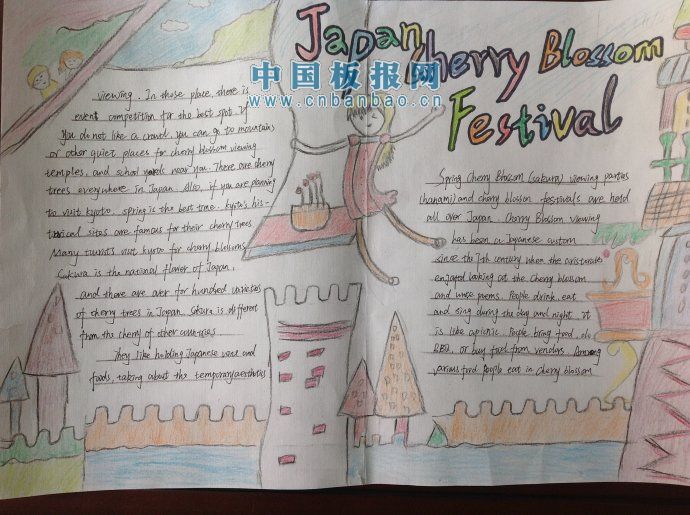 Japan
Cherry Blossom
Festival
中国板报网
www.cnbanbao.cn
viewing. In those place, there is
event competition for the best spot. If
You do not like a crowd, you can go to mountains
or other quiet places for cherry blossom viewing
temples, and school yards near you. There are cherry
trees everywhere in Japan. Also, if you are planning
to visit kyoto. spring is the best time. kyoto's his-
torical sites are famous for their cherry trees
Many tourists visit kyoto for cherry
Sakura is the national flower of Japan.
and there are over for hundred varieties
of cherry trees in Japan. Sakura is different
from the cherry of other countries
They like holding Japanese and
foods, taking about the temporary aesthetics
Spring Cherry Blossom (sakura) viewing parties
(hanami) and cherry blossom festivals are held
all over Japan. Cherry Blossom viewing
has been a Japanese custom
since the 7th century when the
enjoyed looking at the Cherry blossom
and wrose poems. People drink, eat
and sing during the day and night. it
is like a picnic. People bring food, do
BBQ, or buy food from
food People eat in Cherry blossom